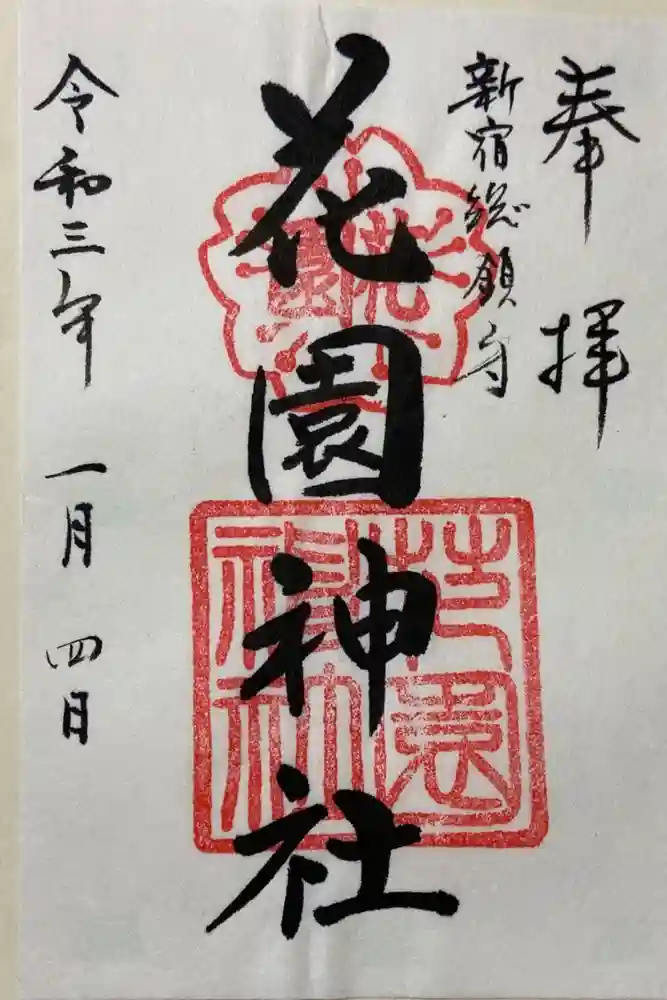 奉拝
新宿総領守
花園神社
令和三年 一月 四日
花園
花園神社